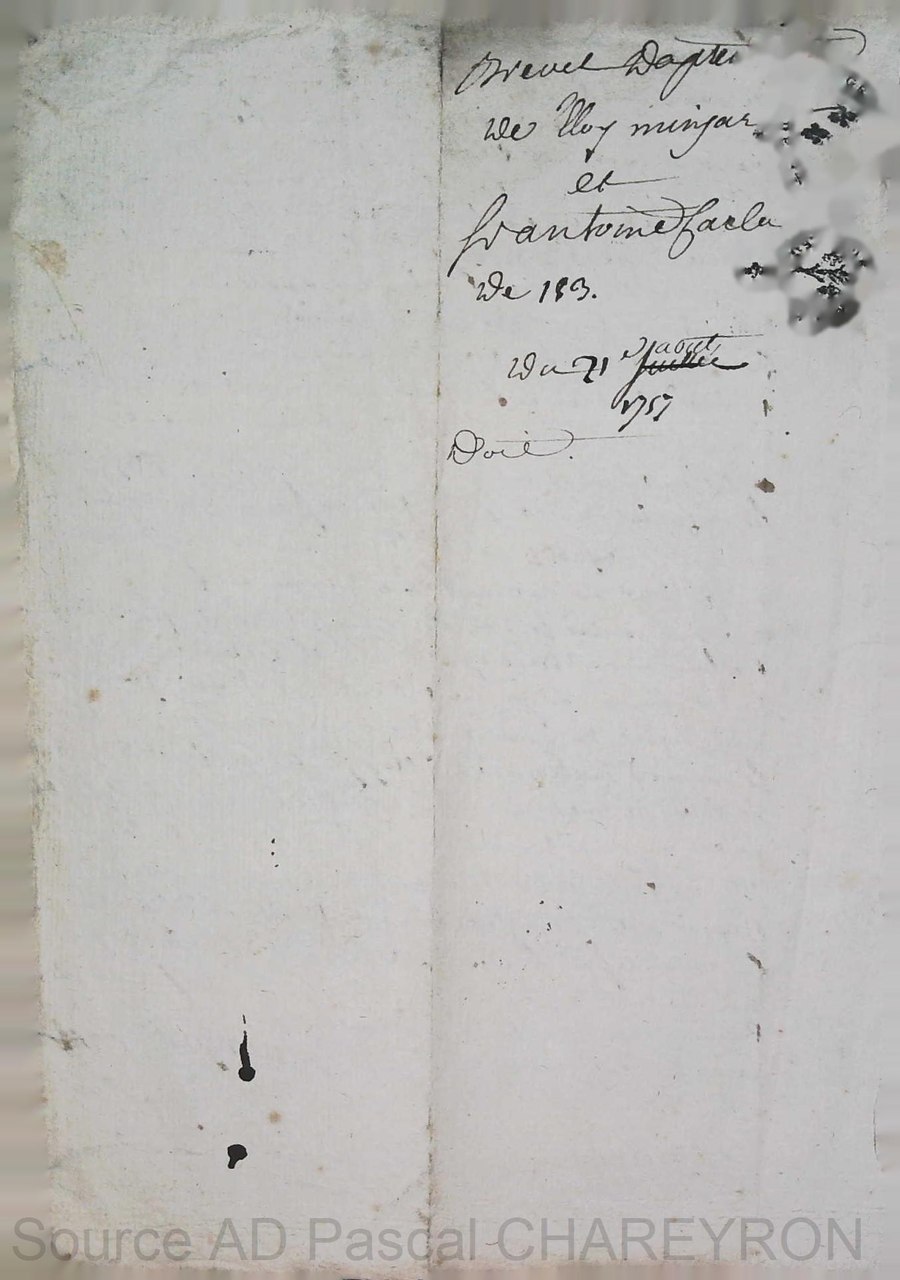 Brevet Dapre
de Eloy minjar
et
frantoine
de 183.
du 21e aout
Juillet
1757
Doit.
Source AD Pascal CHAREYRON